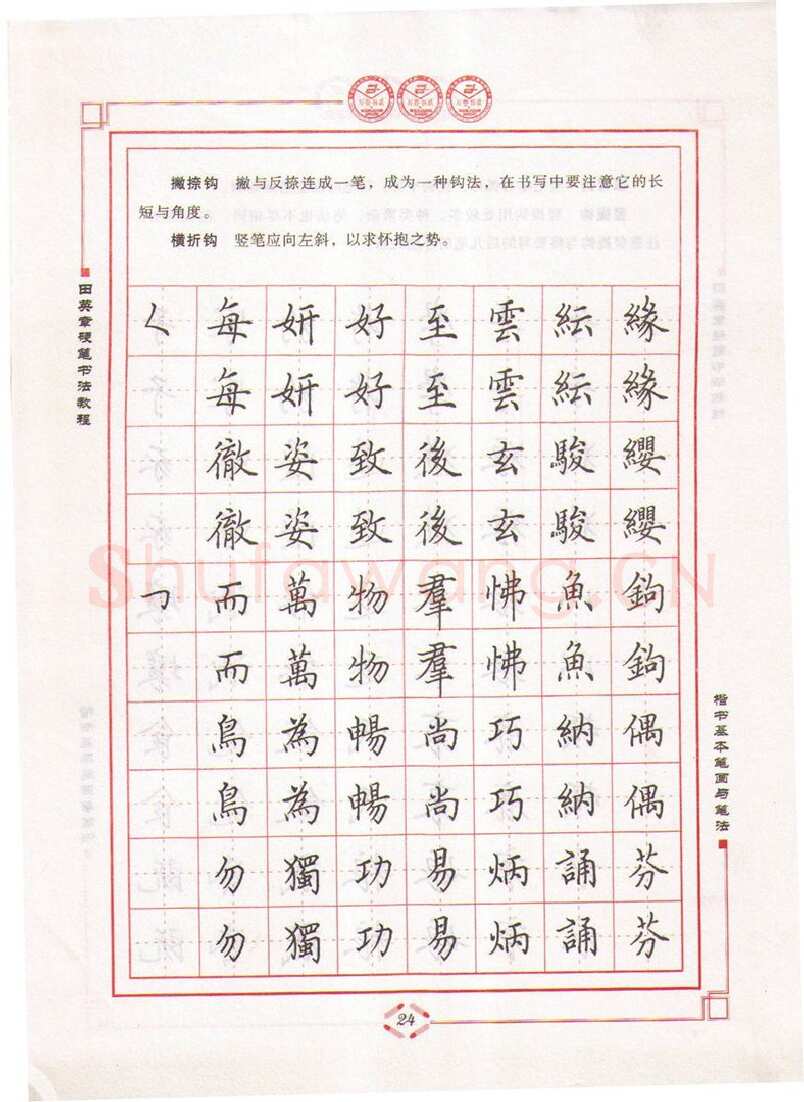 撇捺钩 撇与反捺连成一笔，成为一种钩法，在书写中要注意它的长
短与角度。
横折钩 竖笔应向左斜，以求怀抱之势。
田英章硬笔书法教程
く 每 妍 好 至 雲 紜 緣
每 妍 好 至 雲 紜 緣
徹 姿 致 後 玄 駿 纓
徹 姿 致 後 玄 駿 纓
㇆ 而 萬 物 羣 怫 魚 鉤
而 萬 物 羣 怫 魚 鉤
鳥 為 暢 尚 巧 納 偶
鳥 為 暢 尚 巧 納 偶
勿 獨 功 易 炳 誦 芬
勿 獨 功 易 炳 誦 芬
楷书基本笔画与笔法
Shufawang.CN
24